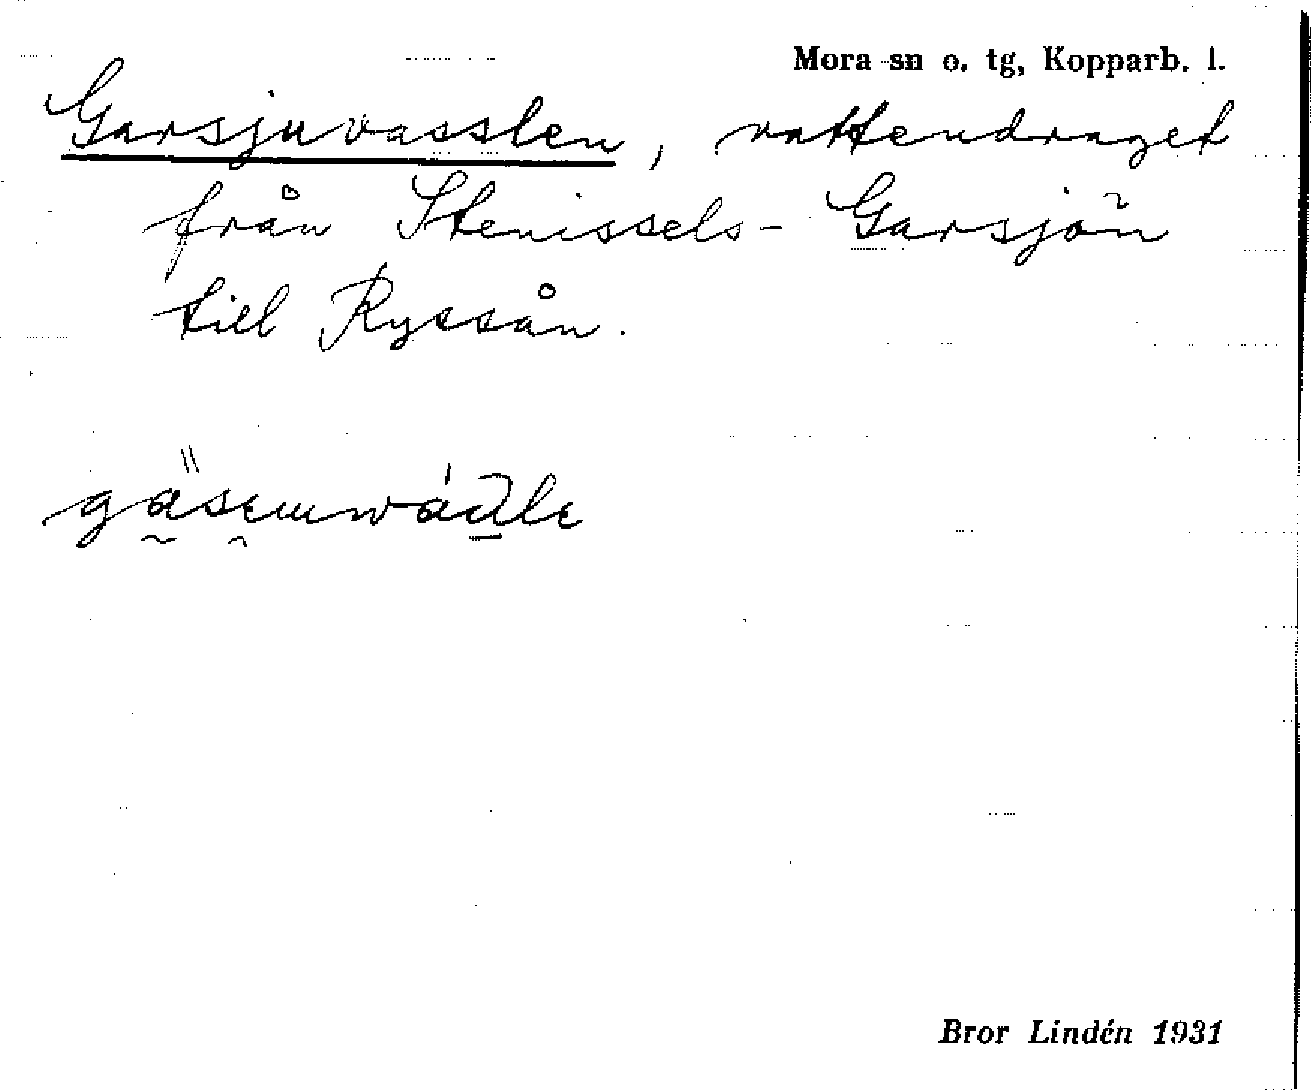 Mora sn o. tg, Kopparb. l.
Garsjuvasslen, vattendraget
från Stenissels- Garsjön
till Ryssån.
Bror Lindén 1931